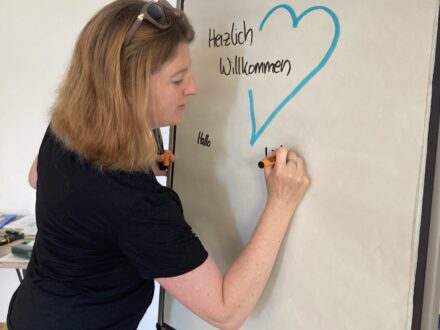 Herzlich
Willkommen
Hallo